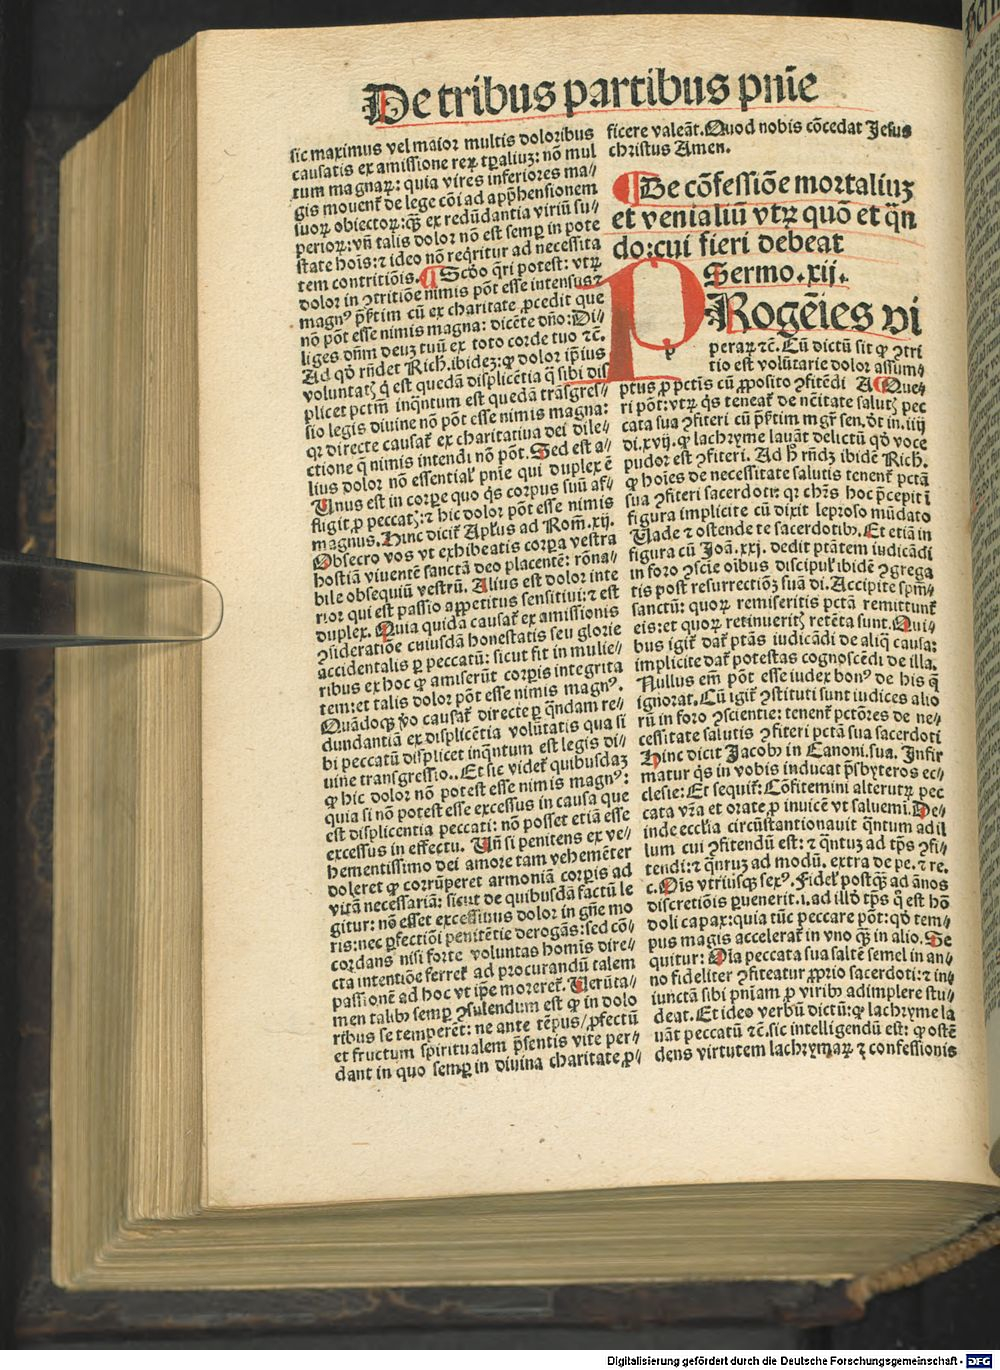 De tribus partibus pnīe
sic maximus vel maior multis doloribus
causatis ex amissione reꝝ tꝑaliuꝫ: nō mul
tum magnaꝝ: quia vires inferiores ma⸗
gis mouent̄ de lege cōi ad app̄hensionem
suoꝝ obiectoꝝ: qꝫ ex redūdantia viriū su⸗
perioꝝ: vn̄ talis dolor nō est semꝑ in pote
state hoīs: ⁊ ideo nō reqritur ad necessita
tem contritiōis. Scḋo q̄ri potest: vtꝝ
dolor in ꝯtritiōe nimis pōt esse intensus ⁊
magnꝰ p̄ktim cū ex charitate ꝓcedit que
nō pōt esse nimis magna: dicēte dn̄o: Di⸗
liges dn̄m deuꝫ tuū ex toto corde tuo ⁊c̄.
Ad qḋ rn̄det Rich. ibideꝫ: ꝙ dolor ip̄ius
voluntatꝭ q̇ est quedā displicētia q̄ sibi dis
plicet pctm̄ inq̄ntum est quedā trāsgres⸗
sio legis diuine nō pōt esse nimis magna:
qꝛ directe causat̄ ex charitatiua dei dile⸗
ctione q̄ nimis intendi nō pōt. Sed est a⸗
lius dolor nō essential̓ pnīe qui duplex ē
Unus est in corꝑe quo q̇s corpus suū af⸗
fligit ꝓ peccatꝭ: ⁊ hic dolor pōt esse nimis
magnus. Hinc dicit̄ Ap̄lus ad Rom̄. xij.
Obsecro vos vt exhibeatis corꝑa vestra
hostiā viuentē sanctā deo placentē: rōna⸗
bile obsequiū vestrū. Alius est dolor inte
rior qui est passio appetitus sensitiui: ⁊ est
duplex. Quia quidā causat̄ ex amissionis
ꝯsideratiōe cuiusdā honestatis seu glorie
accidentalis ꝑ peccatū: sicut fit in mulie⸗
ribus ex hoc ꝙ amiserūt corꝑis integrita
tem: et talis dolor pōt esse nimis magnꝰ.
Quādoqꝫ ṽo causat̄ directe ꝑ q̄ndam re⸗
dundantiā ex displicētia volūtatis qua si
bi peccatū displicet inq̄ntum est legis di⸗
uine transgressio.. Et sic videt̄ quibusdaꝫ
ꝙ hic dolor nō potest esse nimis magnꝰ:
quia si nō potest esse excessus in causa que
est displicentia peccati: nō posset etiā esse
excessus in effectu. Un̄ si penitens ex ve⸗
hementissimo dei amore tam vehemēter
doleret ꝙ corrūperet armoniā corꝑis ad
vitā necessariā: sicut de quibusdā factū le
gitur: nō esset excessiuus dolor in gn̄e mo
ris: nec ꝑfectiōi penitētie derogās: sed cō⸗
cordans nisi forte voluntas homīs dire⸗
cta intentiōe ferret̄ ad procurandū talem
passionē ad hoc vt ip̄e moreret̄. Uerūta⸗
men talibꝰ semꝑ ꝯsulendum est ꝙ in dolo
ribus se temperēt: ne ante tēpus/ ꝓfectū
et fructum spiritualem p̄sentis vite per⸗
dant in quo semꝑ in diuina charitate ꝓ⸗
ficere valeāt. Quod nobis cōcedat Jesus
christus Amen.
De cōfessiōe mortaliuꝫ
et venialiū vtꝝ quō et q̄n
do: cui fieri debeat
Sermo. xij.
PRogēies vi
p
peraꝝ ⁊c̄. Cū dictū sit ꝙ ꝯtri
tio est volūtarie dolor assum⸗
ptus ꝓ pctīs cū ꝓposito ꝯfitēdi A Que⸗
ri pōt: vtꝝ q̇s teneat̄ de nc̄itate salutꝭ pec
cata sua ꝯfiteri cū p̄ktim mgr̄ sen. dt̄ in. iiij
di. xvij. ꝙ lachryme lauāt delictū qḋ voce
pudor est ꝯfiteri. Ad h̄ rn̄dꝫ ibidē Rich.
ꝙ hoīes de necessitate salutis tenent̄ pctā
sua ꝯfiteri sacerdoti: qꝛ chr̄s hoc p̄cepit ī
figura implicite cū dixit leproso mūdato
Uade ⁊ ostende te sacerdotibꝰ. Et etiā in
figura cū Joā. xxj. dedit ptātem iudicādi
in foro ꝯscīe oībus discipul̓ ibidē ꝯgrega
tis post resurrectiōꝫ suā di. Accipite spm̄⸗
sanctū: quoꝝ remiseritis pctā remittunt̄
eis: et quoꝝ retinueritꝭ retēta sunt. Qui⸗
bus igit̄ dat̄ ptās iudicādi de aliq̄ causa:
implicite dat̄ potestas cognoscēdi de illa.
Nullus em̄ pōt esse iudex bonꝰ de his q̄
ignorat. Cū igit̄ ꝯstituti sunt iudices alio
rū in foro ꝯscientie: tenent̄ pctōres de ne⸗
cessitate salutis ꝯfiteri pctā sua sacerdoti
Hinc dicit Jacobꝰ in Canoni. sua. Infir
matur q̇s in vobis inducat p̄sbyteros ec⸗
clesie: Et sequit̄: Cōfitemini alterutꝝ pec
cata vr̄a et orate ꝓ inuicē vt saluemī. De⸗
inde ecclīa circūstantionauit q̄ntum ad il
lum cui ꝯfitendū est: ⁊ q̄ntuꝫ ad tp̄s ꝯfi⸗
tendi: ⁊ q̄ntuꝫ ad modū. extra de pe. ⁊ re.
c. Ois vtriusqꝫ sexꝰ. Fidel̓ postqꝫ ad ānos
discretiōis ꝑuenerit. i. ad illō tp̄s q̇ est hō
doli capax: quia tūc peccare pōt: qḋ tem⸗
pus magis accelerat̄ in vno qꝫ in alio. Se
quitur: Oīa peccata sua saltē semel in an⸗
no fideliter ꝯfiteatur ꝓprio sacerdoti: ⁊ in⸗
iunctā sibi pnīam ꝓ viribꝰ adimplere stu⸗
deat. Et ideo verbū dictū: ꝙ lachryme la
uāt peccatū ⁊c̄. sic intelligendū est: ꝙ ostē
dens virtutem lachrymaꝝ ⁊ confessionis
Digitalisierung gefördert durch die Deutsche Forschungsgemeinschaft - DFG